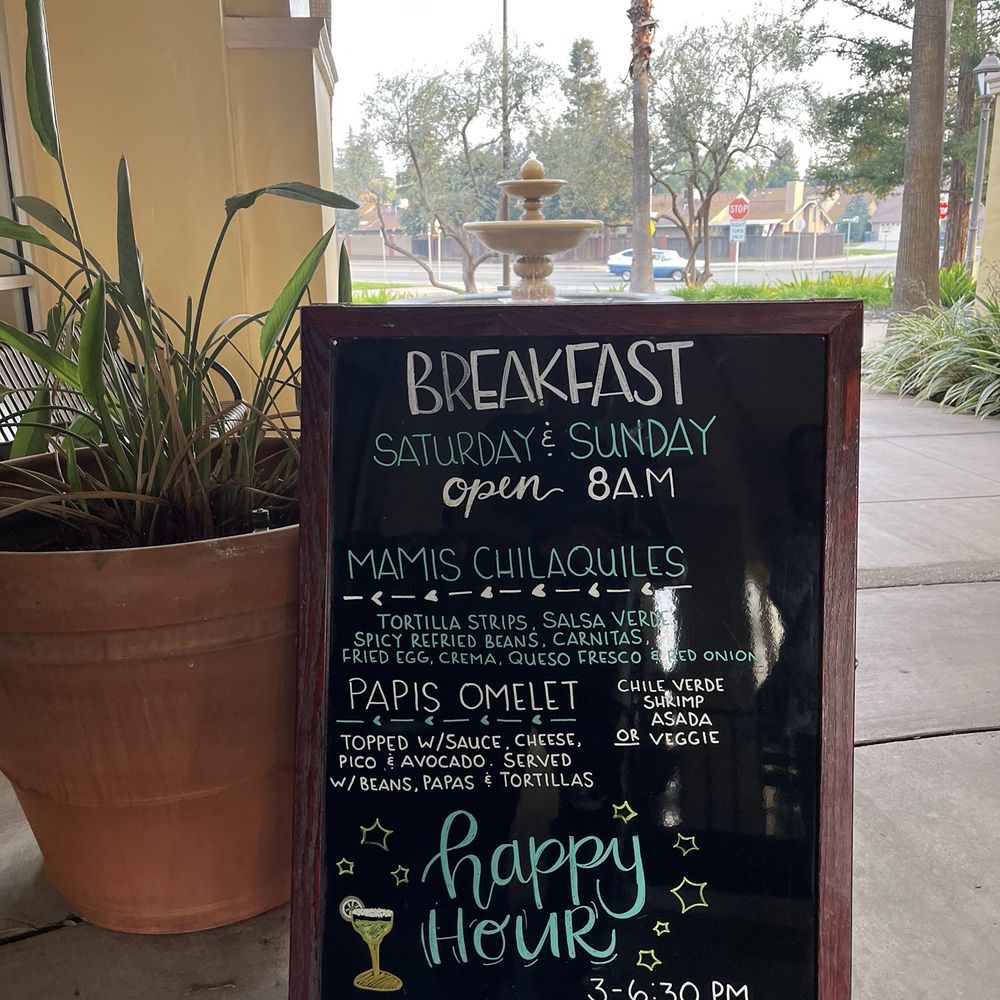 STOP
RIGHT
TURN
ONLY
BREAKFAST
SATURDAY & SUNDAY
open 8A.M
MAMIS CHILAQUILES
TORTILLA STRIPS, SALSA VERDE,
SPICY REFRIED BEANS, CARNITAS,
FRIED EGG, CREMA, QUESO FRESCO & RED ONION
PAPIS OMELET
TOPPED W/SAUCE, CHEESE,
PICO & AVOCADO. SERVED
W/BEANS, PAPAS & TORTILLAS
CHILE VERDE
SHRIMP
ASADA
OR VEGGIE
happy
HOUR
3-6:30 PM